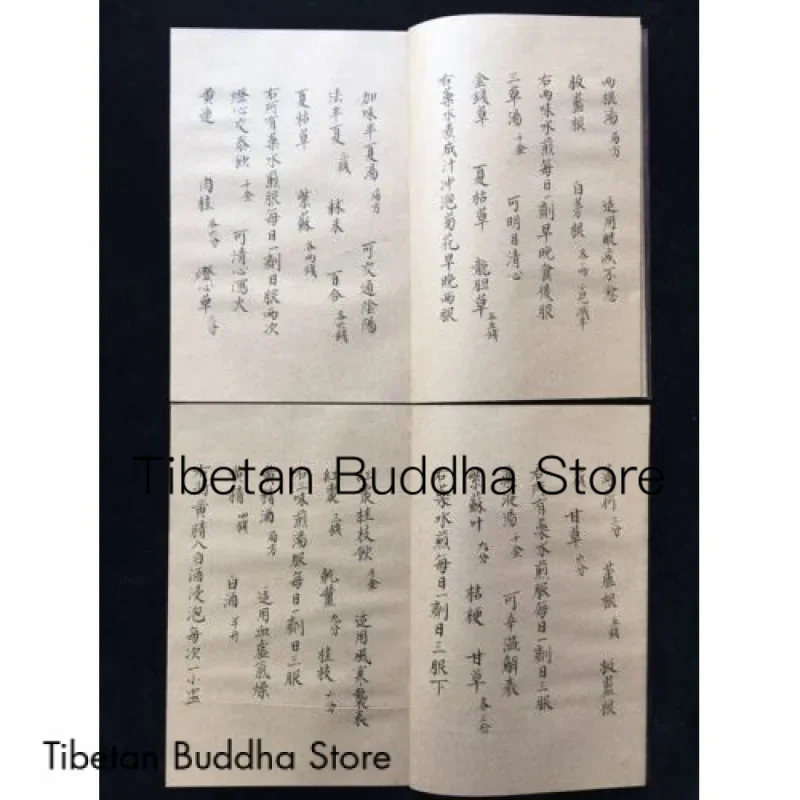 兩根湯 局方 适用酸痰不愈
板藍根 白芳根 各兩
右兩味水煎每日一劑早晚食後服
三草湯 千金 可明目清心
金錢草 夏枯草 龍胆草 各五錢
右藥水煮成汁冲泡菊花早晚兩服
加味半夏湯 局方 可交通陰陽
法半夏 三錢 秫米 百合 各六錢
夏枯草 紫蘇 各兩錢
右所有藥水煎服每日一劑日服兩次
燈心交泰飲 千金 可清心瀉火
黄連 肉桂 各六分 燈心草
三分 蘆根 五錢 板藍根
甘草 六分
右所有藥水煎服每日一劑日三服
湯 千金 可辛溫解表
紫蘇叶 九分 桔梗 甘草 各三分
右藥水煎每日一劑日三服下
棗桂枝飲 千金 适用風寒襲表
紅棗 三錢 乾薑 九分 桂枝 十分
右三味煎湯服每日一劑日三服
黄精酒 局方 适用血虛氣燥
黄精 四錢 白酒 半斤
右将黄精入白酒浸泡每次一小盅
Tibetan Buddha Store
Tibetan Buddha Store
Tibetan Buddha Store